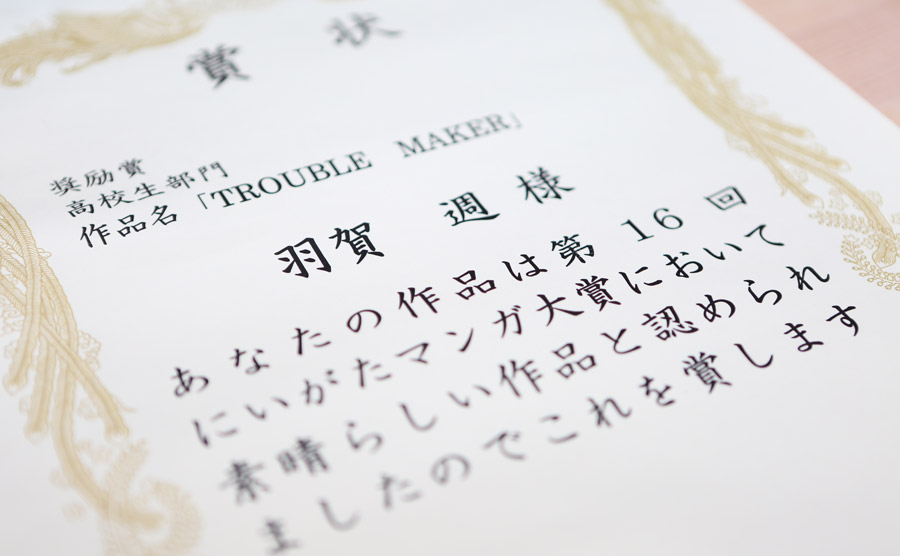 賞　状
奨励賞
高校生部門
作品名「TROUBLE　MAKER」
羽賀　週 様
あなたの作品は第 16 回
にいがたマンガ大賞において
素晴らしい作品と認められ
ましたのでこれを賞します